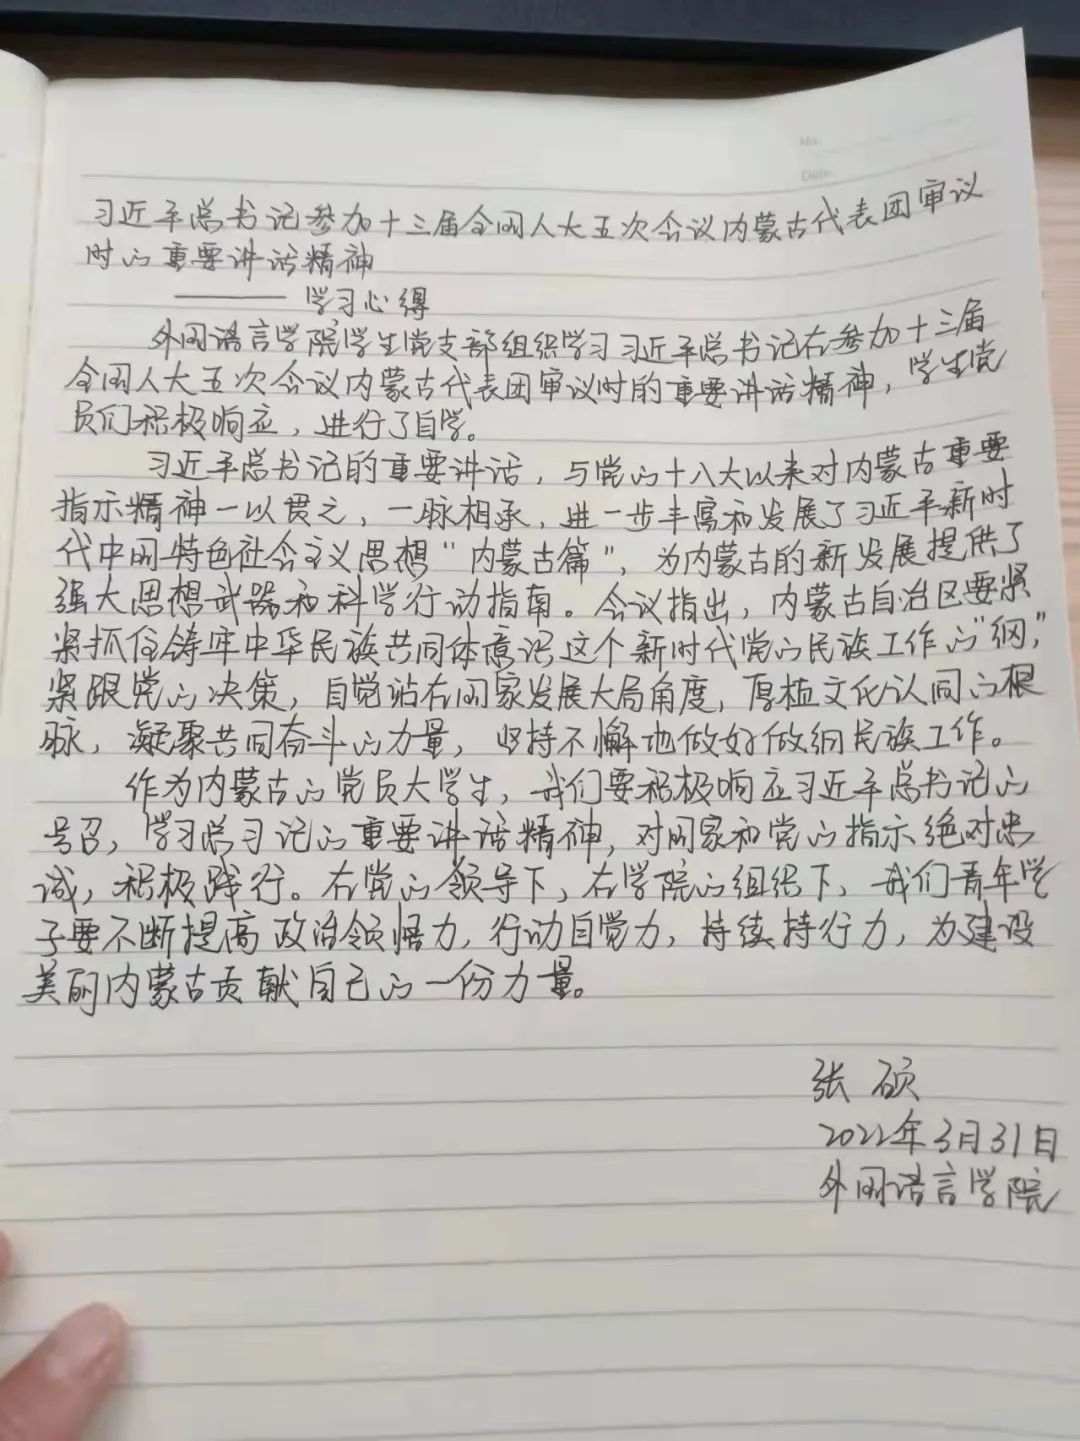 No:
Date:
习近平总书记参加十三届全国人大五次会议内蒙古代表团审议
时的重要讲话精神
——— 学习心得
外国语言学院学生党支部组织学习习近平总书记在参加十三届
全国人大五次会议内蒙古代表团审议时的重要讲话精神，学生党
员们积极响应，进行了自学。
习近平总书记的重要讲话，与党的十八大以来对内蒙古重要
指示精神一以贯之，一脉相承，进一步丰富和发展了习近平新时
代中国特色社会主义思想“内蒙古篇”，为内蒙古的新发展提供了
强大思想武器和科学行动指南。会议指出，内蒙古自治区要紧
紧抓住铸牢中华民族共同体意识这个新时代党的民族工作的“纲，”
紧跟党的决策，自觉站在国家发展大局角度，厚植文化认同的根
脉，凝聚共同奋斗的力量，坚持不懈地做好做细民族工作。
作为内蒙古的党员大学生，我们要积极响应习近平总书记的
号召，学习总习记的重要讲话精神，对国家和党的指示绝对忠
诚，积极践行。在党的领导下，在学院的组织下，我们青年学
子要不断提高政治领悟力，行动自觉力，持续持行力，为建设
美丽内蒙古贡献自己的一份力量。
张硕
2022年3月31日
外国语言学院